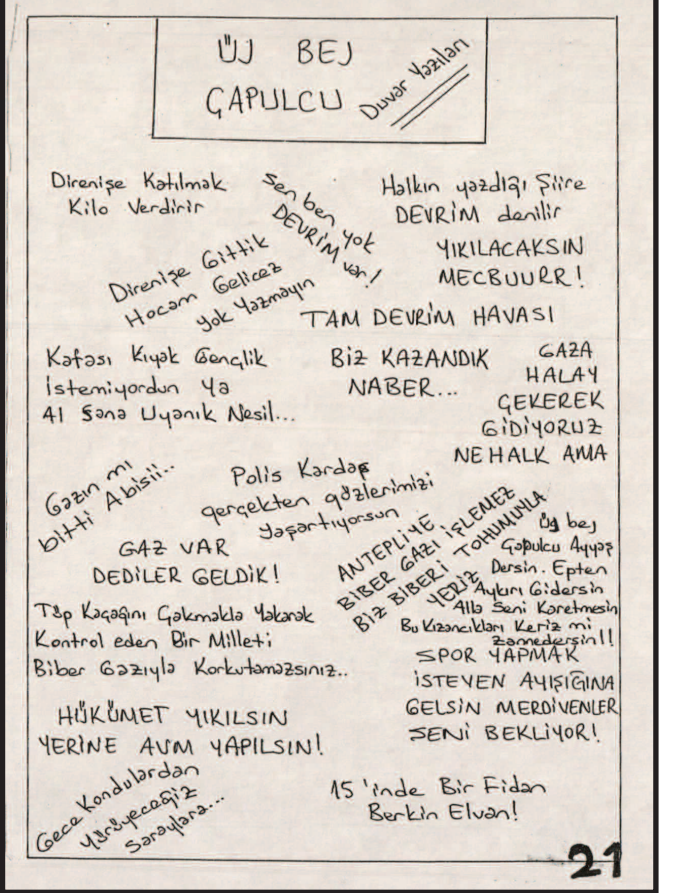 ÜJ BEJ
ÇAPULCU
Duvar Yazıları
Direnişe Katılmak
Kilo Verdirir
Sen ben yok
DEVRİM var!
Halkın yazdığı Şiire
DEVRİM denilir
Direnişe Gittik
Hocam Gelicez
yok Yazmayın
YIKILACAKSIN
MECBUURR!
TAM DEVRİM HAVASI
Kafası Kıyak Gençlik
İstemiyordun Ya
Al Sana Uyanık Nesil...
BİZ KAZANDIK
NABER...
GAZA
HALAY
ÇEKEREK
GİDİYORUZ
NE HALK AMA
Gazın mı
bitti Abisii..
Polis Kardaş
gerçekten gözlerimizi
yaşartıyorsun
GAZ VAR
DEDİLER GELDİK!
ANTEPLİYE
BİBER GAZI İŞLEMEZ
BİZ BİBERİ TOHUMUYLA
YERİZ
Üç bej
Çapulcu Ayyaş
Dersin. Epten
Aykırı Gidersin
Alla Seni Karetmesin
Bu Kızancıkları Keriz mi
zamedersin!!
Tüp Kaçağını Çakmakla Yakarak
Kontrol eden Bir Milleti
Biber Gazıyla Korkutamazsınız..
SPOR YAPMAK
İSTEYEN AYIŞIĞINA
GELSİN MERDİVENLER
SENİ BEKLİYOR!
HÜKÜMET YIKILSIN
YERİNE AVM YAPILSIN!
Gece Kondulardan
Yürüyeceğiz
Saraylara...
15'inde Bir Fidan
Berkin Elvan!
21